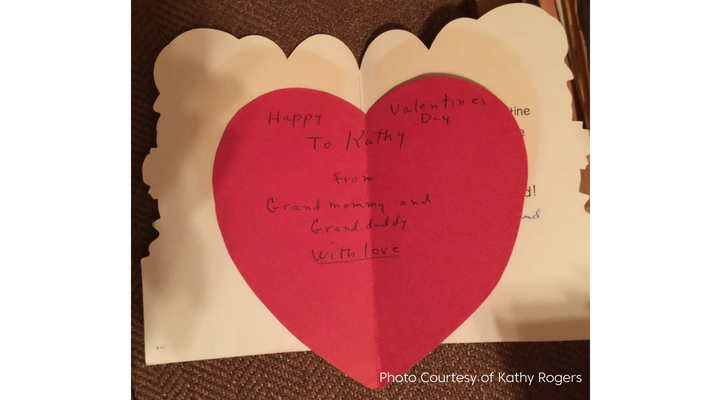 Happy Valentines
Day
To Kathy
From
Grandmommy and
Granddaddy
With love
tine
e
d!
Photo Courtesy of Kathy Rogers